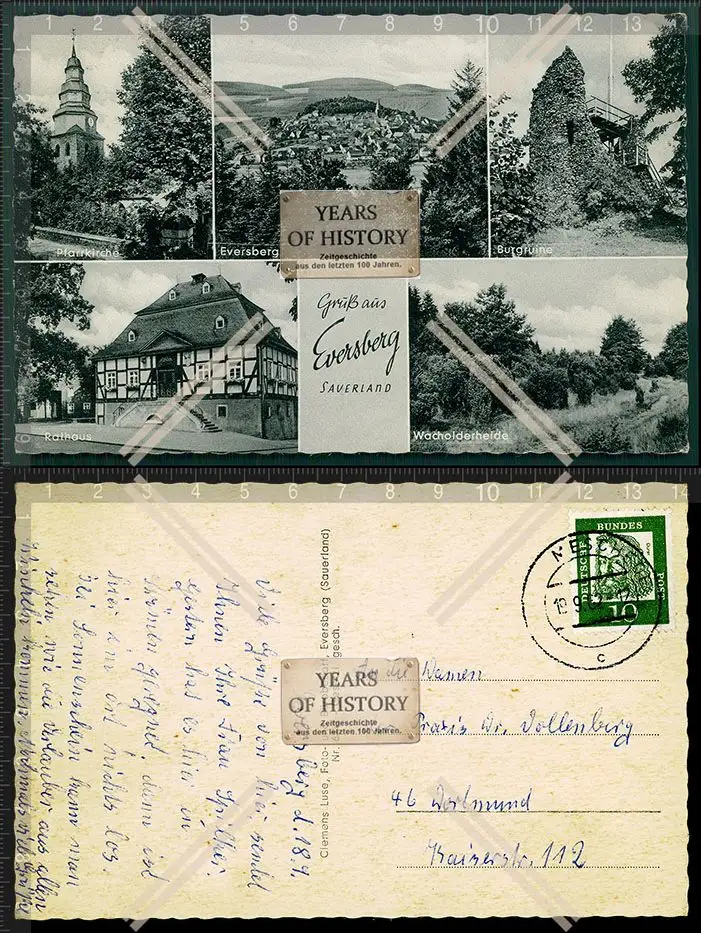 1 2 3 4 5 6 7 8 9 10 11 12 13
Pfarrkirche
Eversberg
Burgruine
YEARS
OF HISTORY
Zeitgeschichte
aus den letzten 100 Jahren.
Gruß aus
Eversberg
SAUERLAND
Rathaus
Wacholderheide
1 2 3 4 5 6 7 8 9 10 11 12 13 14
berg d. 18.9.
Viele Grüße von hier sendet
Ihnen Ihre Frau Spilker.
Gestern hat es hier in
Strömen geregnet, dann ist
hier im Ort nichts los.
Bei Sonnenschein kann man
sehen wie die Urlauber aus allen
Clemens Luse, Foto- Eversberg (Sauerland)
Nr. gesch.
YEARS
OF HISTORY
Zeitgeschichte
aus den letzten 100 Jahren.
DEUTSCHE BUNDES POST
10
MESC
c
An die Damen
Praxis Dr. Dollenberg
46 Dortmund
Kaiserstr. 112